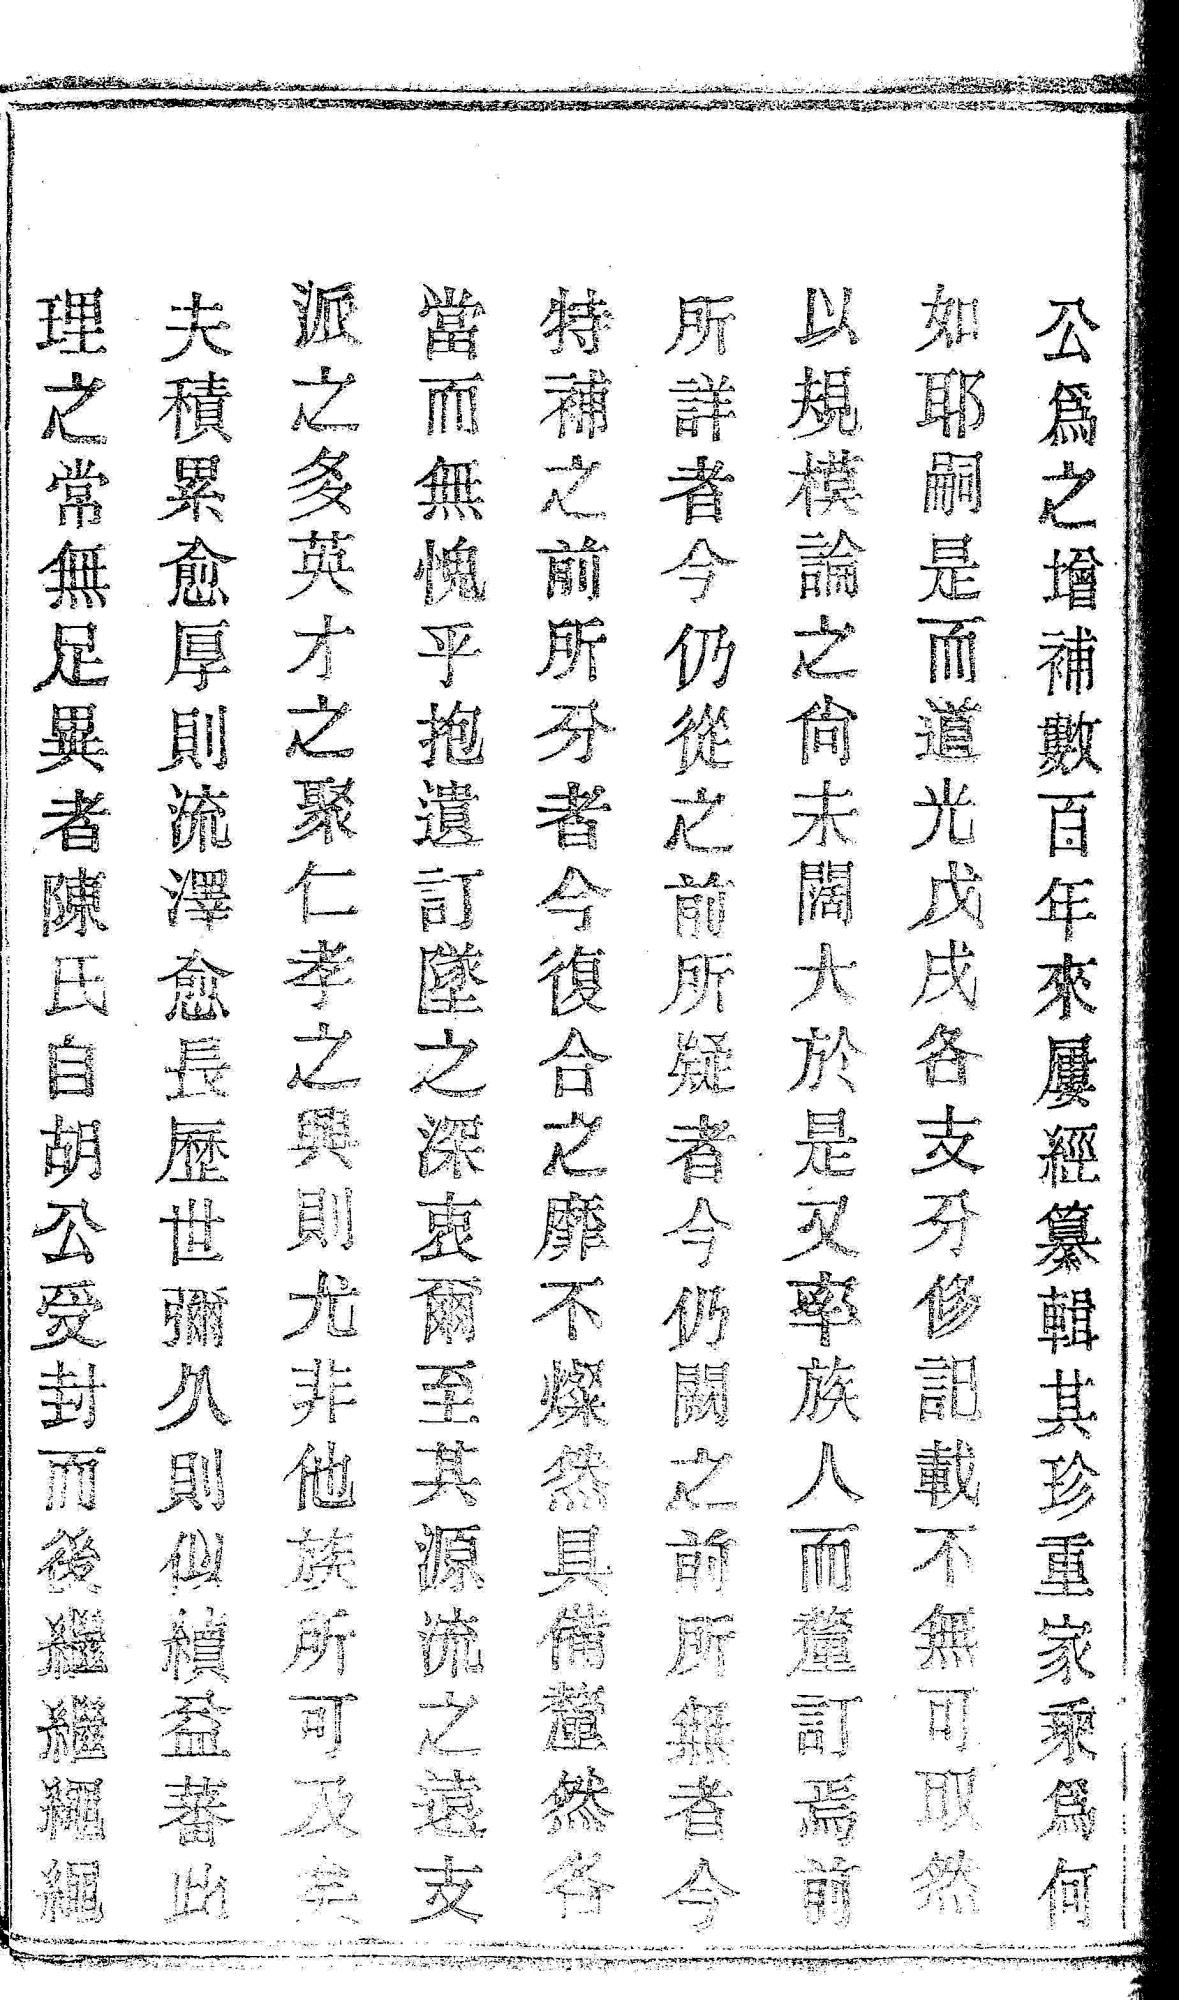 公爲之增補數百年來屢經纂輯其珍重家乘爲何
如耶嗣是而道光戊戌各支分修記載不無可取然
以規模論之尙未闊大於是又率族人而釐訂焉前
所詳者今仍從之前所疑者今仍闕之前所無者今
特補之前所分者今復合之靡不燦然具備釐然各
當而無愧乎抱遺訂墜之深衷爾至其源流之遠支
派之多英才之聚仁孝之興則尤非他族所可及矣
夫積累愈厚則流澤愈長歷世彌久則似續益蕃此
理之常無足異者陳氏自胡公受封而後繼繼繩繩